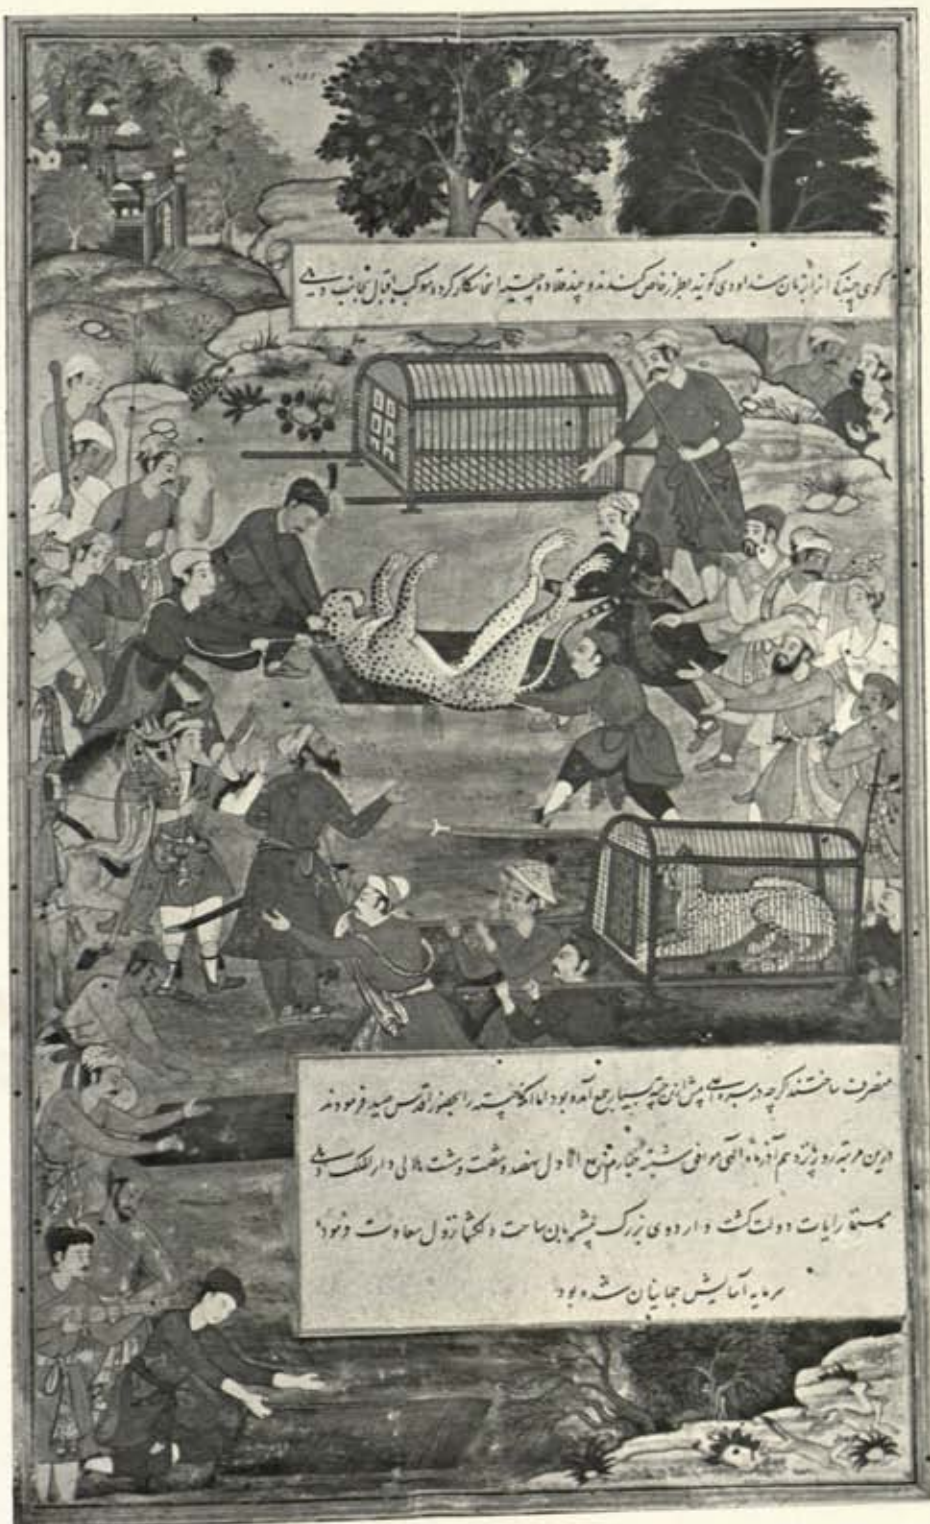 گوی چند که از زمان گویند بطرز خاص کندند و چند قلاده چیته آنجا شکار کرده موکب اقبال بجانب دهلی
منصرف ساختند اگرچه در پیش ازین چیته بسیار جمع آمده بود اما آنکه چیته را بحضور اقدس صید فرمودند
درین مرتبه روز پانزدهم آذر ماه الهی موافق شنبه چهارم ربیع الاول نهصد و شصت و هشت هلالی دارالملک دهلی
مستقر رایات دولت گشت و اردوی بزرگ ساحت دلگشا نزول سعادت نمود
سرمایه آسایش جهانیان شده بود